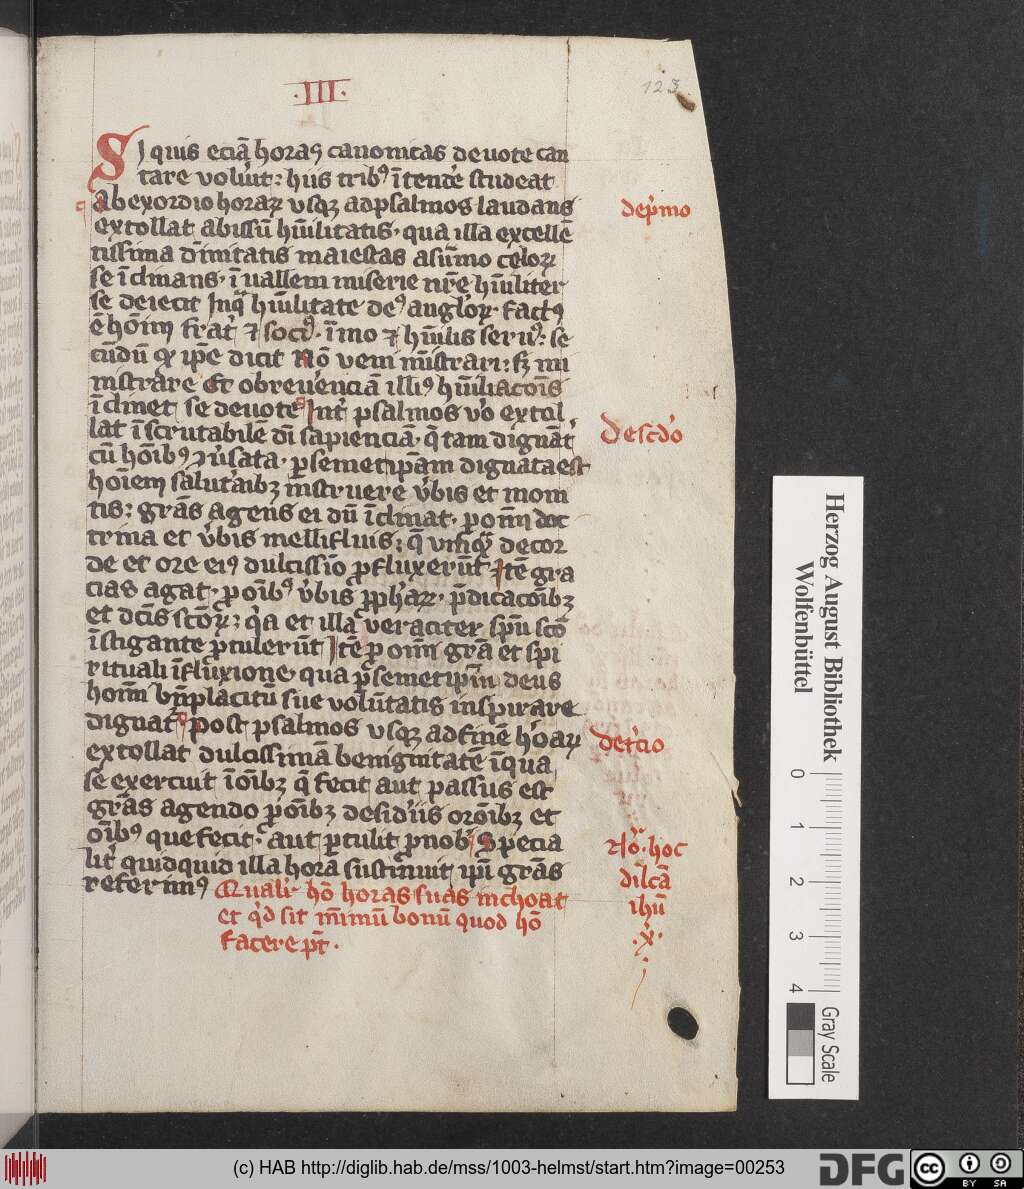 .III.
123
Si quis eciā horas canonicas deuote can
tare volūit: hiis tribꝰ ītende᷑ studeat
Ab exordio horaꝝ vsqꝫ ad psalmos laudans
extollat abissū hūilitatis. qua illa excellē
tissima dīnitatis maiestas a sūmo celoꝝ
se īclinans. ī uallem miserie nrē hūiliter
se deiecit In qͣ hūilitate deꝰ angloꝝ. factꝰ
ē hoīm frat᷑ ⁊ socꝰ. īmo ⁊ hūilis seruꝰ: se
cūdū qꝫ ipē dicit Nō veni mīstrari: sꝫ mi
nistrare Et ob reuenciā illiꝰ hūiliacoīs
īclinet se deuote Int᷑ psalmos vͦo extol
lat īscrutabilē dī sapienciā. q̄ tam dignāt᷑
cū hoībꝰ ꝯūsata. ꝑ semetipam dignata est
hoīem salut᷑aibꝫ instruere v᷑bis et moni
tis: grās agens ei dū īclinat. ꝓ omī doc
trina et v᷑bis mellifluis: q̄ vmqͣ de cor
de et ore eiꝰ dulcissīo ꝓfluxerūt Itē gra
cias agat. ꝓ oībꝰ v᷑bis ꝓphaꝝ. p̄dicacoībꝫ
et dcīs scōꝝ: qͥa et illa veraciter spū scō
īstigante ꝓtulerūt Itē ꝓ omī grā et spi
rituali īfluxione, qua ꝑ semetipm̄ deus
homī bn̄placitū sue volūtatis inspirare
dignat᷑ post psalmos vsqꝫ ad finē hoaꝝ
extollat dulcissimā benignitatē ī qua
se exercuit ī oībꝫ q̄ fecit aut passus est
grās agendo ꝓ oībꝫ desid᷑iis oroībꝫ et
oībꝰ que fecit: aut ꝑtulit ꝓ nob᷑ Specia
lit᷑ quidquid illa hora sustinuit ipī grās
referimꝰ Quali᷑ hō horas suas inchoat
et qͥd sit mīmū bonū quod hō
facere pt̄.
de pͥmo
De scdͦo
de t᷑cio
Rͦ. hoc
dilcā
ihū
.x̄.
Herzog August Bibliothek
Wolfenbüttel
0 1 2 3 4
Gray Scale
(c) HAB http://diglib.hab.de/mss/1003-helmst/start.htm?image=00253
DFG
cc BY SA